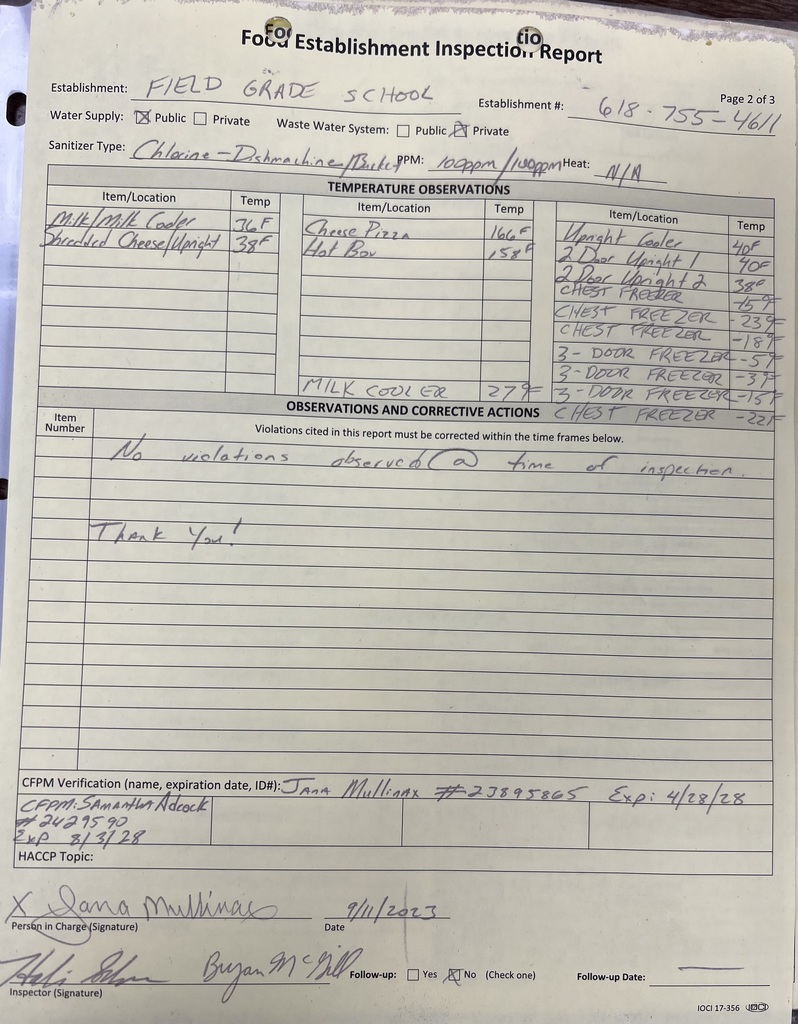 Food Establishment Inspection Report
Establishment: FIELD GRADE SCHOOL Establishment #: 618-755-4611 Page 2 of 3
Water Supply: ☒ Public ☐ Private Waste Water System: ☐ Public ☒ Private
Sanitizer Type: Chlorine-Dishmachine/Bucket PPM: 100ppm/100ppm Heat: N/A
TEMPERATURE OBSERVATIONS
Item/Location Temp Item/Location Temp Item/Location Temp
Milk/Milk Cooler 36F Cheese Pizza 166F Upright Cooler 40F
Shredded Cheese/Upright 38F Hot Box 158F 2 Door Upright 1 40F
2 Door Upright 2 38F
CHEST FREEZER -15F
CHEST FREEZER -23F
CHEST FREEZER -18F
3-DOOR FREEZER -5F
3-DOOR FREEZER -3F
MILK COOLER 27F 3-DOOR FREEZER -15F
OBSERVATIONS AND CORRECTIVE ACTIONS CHEST FREEZER -22F
Item Number Violations cited in this report must be corrected within the time frames below.
No violations observed @ time of inspection.
Thank You!
CFPM Verification (name, expiration date, ID#): Jana Mullinax #23895865 Exp: 4/28/28
CFPM: SAMANTHA Adcock
#2429590
Exp 8/3/28
HACCP Topic:
X Jana Mullinax 9/11/2023
Person in Charge (Signature) Date
Bryan McGill Follow-up: ☐ Yes ☒ No (Check one) Follow-up Date: —
Inspector (Signature)
IOCI 17-356